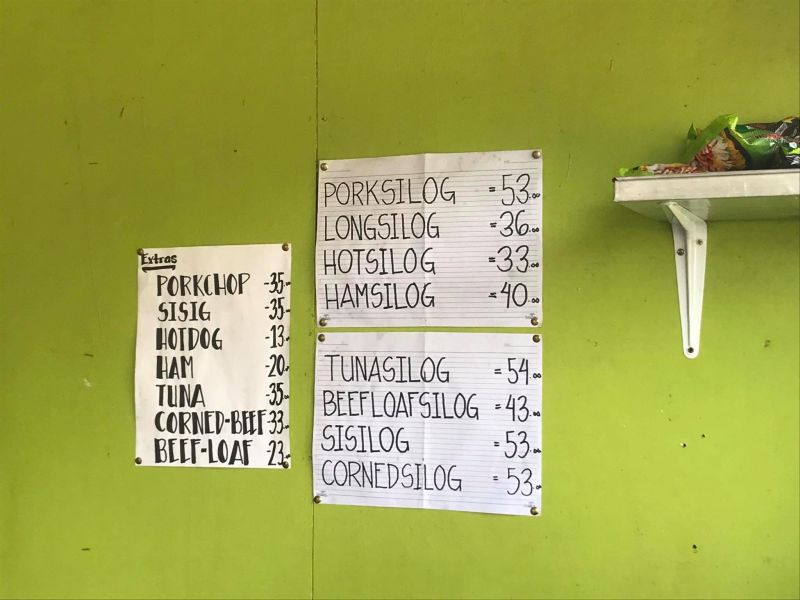 Extras
PORKCHOP -35.
SISIG -35.
HOTDOG -13.
HAM -20.
TUNA -35.
CORNED-BEEF-33.
BEEF-LOAF 23.
PORKSILOG =53.00
LONGSILOG =36.00
HOTSILOG =33.00
HAMSILOG =40.00
TUNASILOG =54.00
BEEFLOAFSILOG =43.00
SISILOG =53.00
CORNEDSILOG =53.00